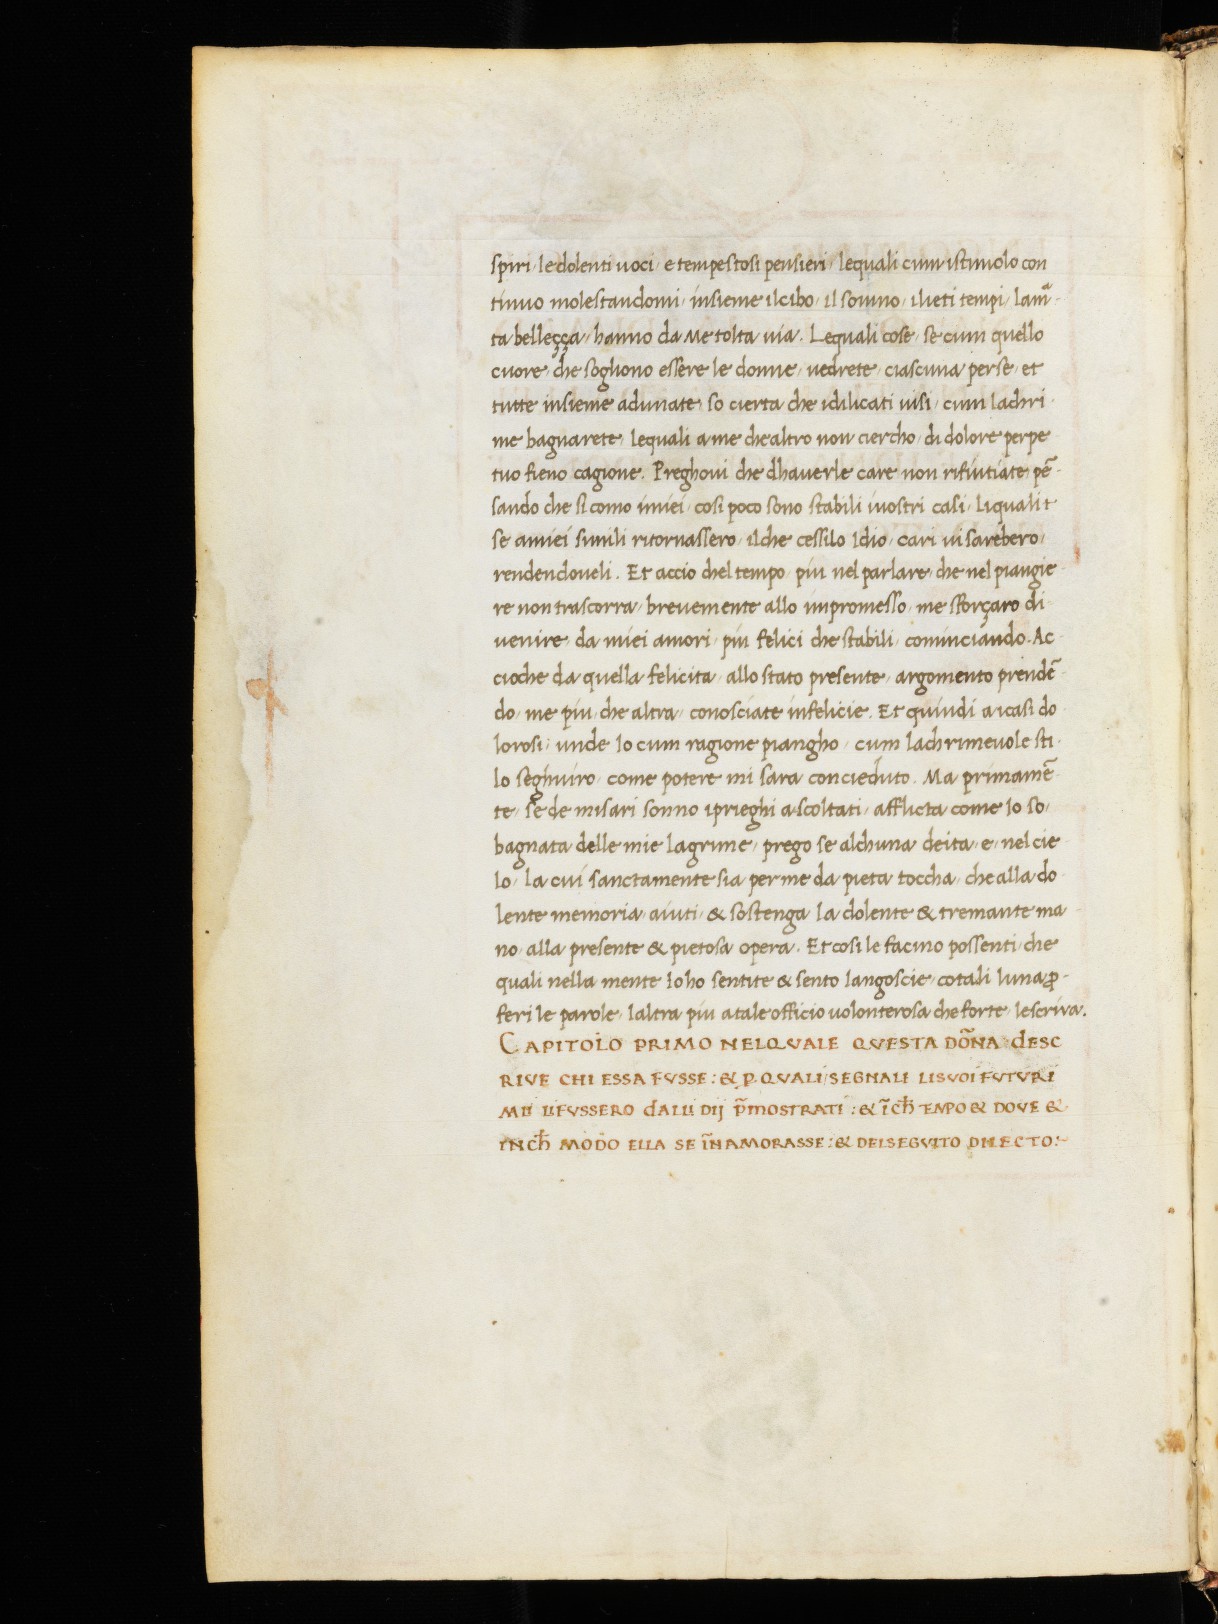 spiri, le dolenti uoci, e tempestosi pensieri, lequali cum istimolo con
tinuo molestandomi, insieme il cibo, il sonno, i lieti tempi, lamã
ta belleçça, hanno da me tolta uia. Lequali cose, se cum quello
cuore, che sogliono essere le donne, uedrete, ciascuna perse, et
tutte insieme adunate, so cierta che idilicati uisi, cum lachri
me bagnarete, lequali a me che altro non ciercho, di dolore perpe
tuo fieno cagione. Preghoui che dhauerle care non rifiutiate, pẽ
sando che si como i miei, cosi poco sono stabili i uostri casi, liquali
se amiei simili ritornassero, ilche cessilo Idio, cari ui sarebero,
rendendoueli. Et accio chel tempo, piu nel parlare, che nel piangie
re non trascorra, breuemente allo impromesso, me sforçaro di
uenire, da miei amori, piu felici che stabili, cominciando. Ac
cioche da quella felicita, allo stato presente, argomento prendẽ
do, me piu, che altra, conosciate infelicie. Et quindi a i casi do
lorosi, unde Io cum ragione piangho, cum lachrimeuole sti
lo seghuiro, come potere mi sara conciеduto. Ma primamẽ
te, se de misari sonno i prieghi ascoltati, afflicta come Io so,
bagnata delle mie lagrime, prego se alchuna deita, e, nel cie
lo, la cui sanctamente sia per me da pieta toccha, che alla do
lente memoria, aiuti, & sostenga la dolente & tremante ma
no, alla presente & pietosa opera. Et cosi le facino possenti, che
quali nella mente Io ho sentite & sento langoscie, cotali luna ꝓ
feri le parole, laltra piu a tale officio uolonterosa che forte, le scriua.
CAPITOLO PRIMO NELQUALE QUESTA DÕNA DESC
RIUE CHI ESSA FUSSE: & P QUALI SEGNALI LISUOI FUTURI
MLI LI FUSSERO DALLI DIJ P̃MOSTRATI: & ĨCH̃ TENPO & DOVE &
INCH̃ MODO ELLA SE ĨNAMORASSE: & DELSEGUITO DILECTO:~